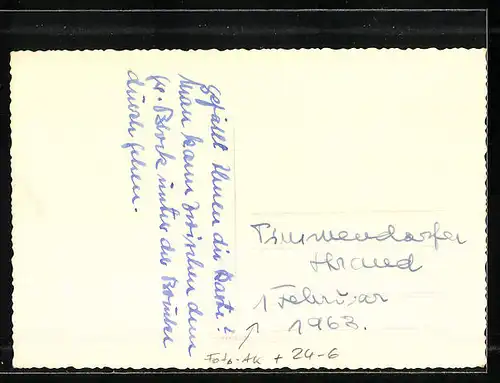 Gefällt Ihnen die Karte?
Man kann zwischen dem
gr. Block unter der Brücke
durch gehen.
Timmendorfer
Strand
1 Februar
1963.
Foto-AK + 24-6